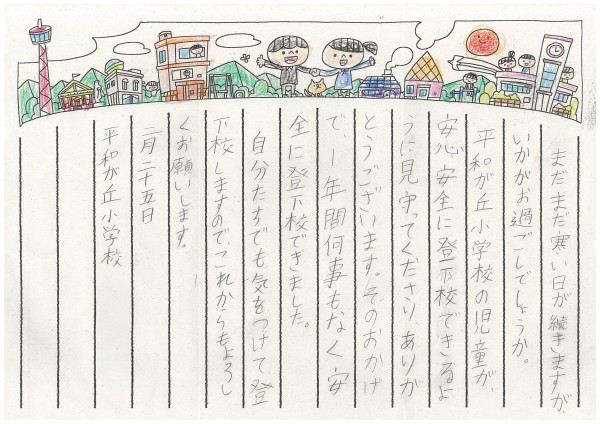 まだまだ寒い日が続きますが、
いかがお過ごしでしょうか。
平和が丘小学校の児童が、
安心安全に登下校できるよ
うに見守ってくださり、ありが
とうございます。そのおかげ
で、1年間何事もなく安
全に登下校できました。
自分たちでも気をつけて登
下校しますので、これからもよろし
くお願いします。
二月二十五日
平和が丘小学校